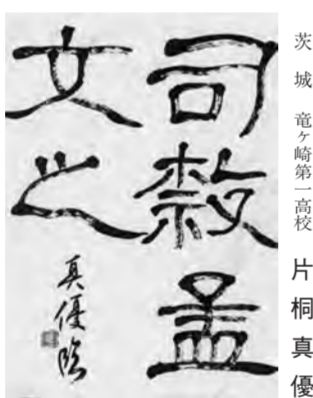 茨城 竜ヶ崎第一高校 片桐真優
司隷孟
文之
真優臨